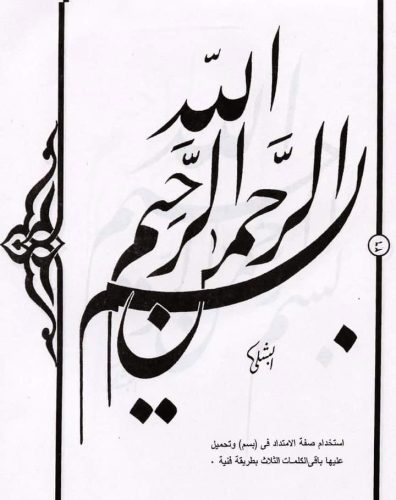 بسم الله الرحمن الرحيم
استخدام صفة الامتداد فى (بسم) وتحميل
عليها باقى الكلمـات الثلاث بطريقة فنية .